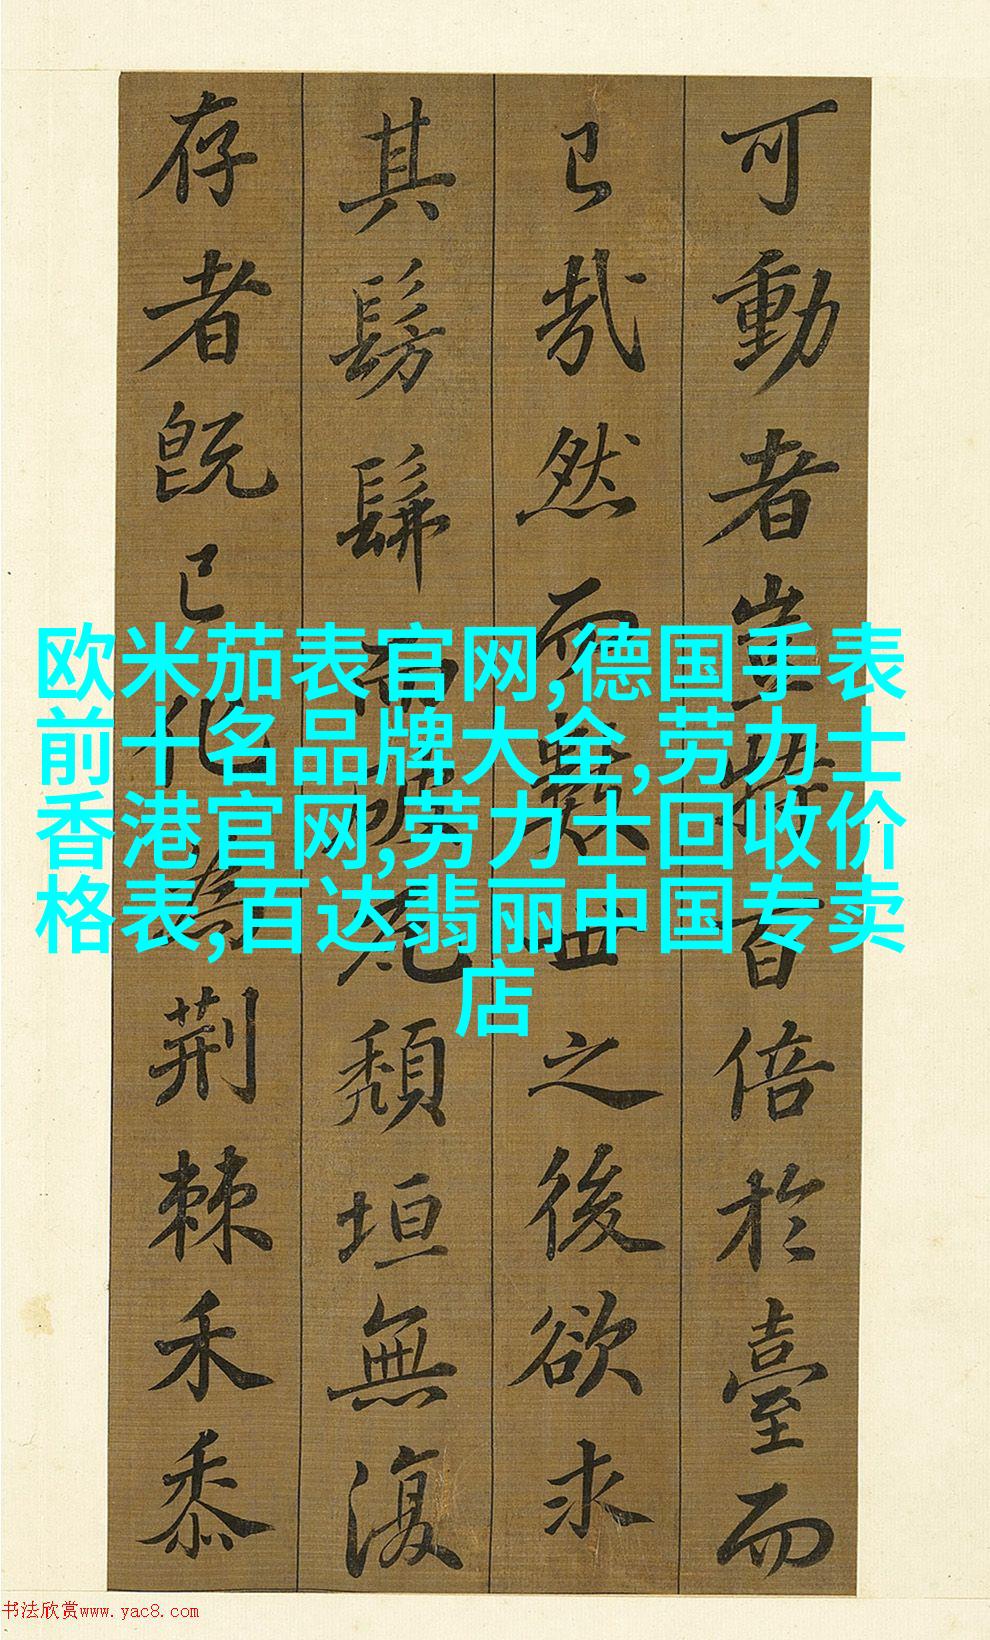 可動者豈特百倍於臺而
已哉然而數世之後欲求
其髣髴而破瓦頹垣無復
存者既已化為荆棘禾黍
欧米茄表官网,德国手表
前十名品牌大全,劳力士
香港官网,劳力士回收价
格表,百达翡丽中国专卖
店
书法欣赏www.yac8.com